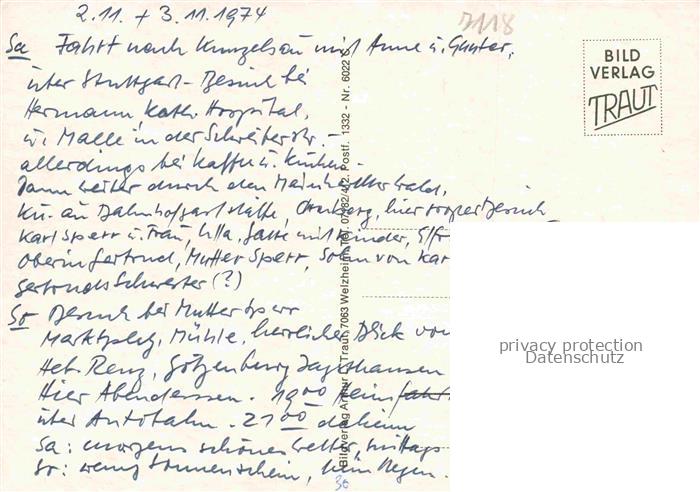 2.11. + 3.11.1974
7118
Sa Fahrt nach Künzelsau mit Anne u. Gunter,
über Stuttgart - Besuch bei
Hermann, Kath. Hospital,
u. Malle in der Schreiberstr. -
allerdings bei Kaffee u. Kuchen -
Dann weiter durch den Mainhardter Wald,
Kü. au Bahnhofsgaststätte, hier Besuch
Karl Sperr u. Frau, Ulla, Gatte mit Kinder,
Oberin Gertrud, Mutter Sperr, Sohn von Kar
Gertruds Schwester (?)
So Besuch bei Mutter Sperr
Marktplatz, Mühle, herrlicher Blick von
Heb. Renz, Götzenburg Jagsthausen
Hier Abendessen. 19 00 Heimfahrt
über Autobahn. 21 00 daheim
Sa: morgens schönes Wetter, mittags
So: wenig Sonnenschein, kein Regen.
36
Bildverlag Arthur F. Traut, 7063 Welzheim, Tel. 07182/412, Postf. 1332 - Nr. 6022 C
BILD
VERLAG
TRAUT
privacy protection
Datenschutz